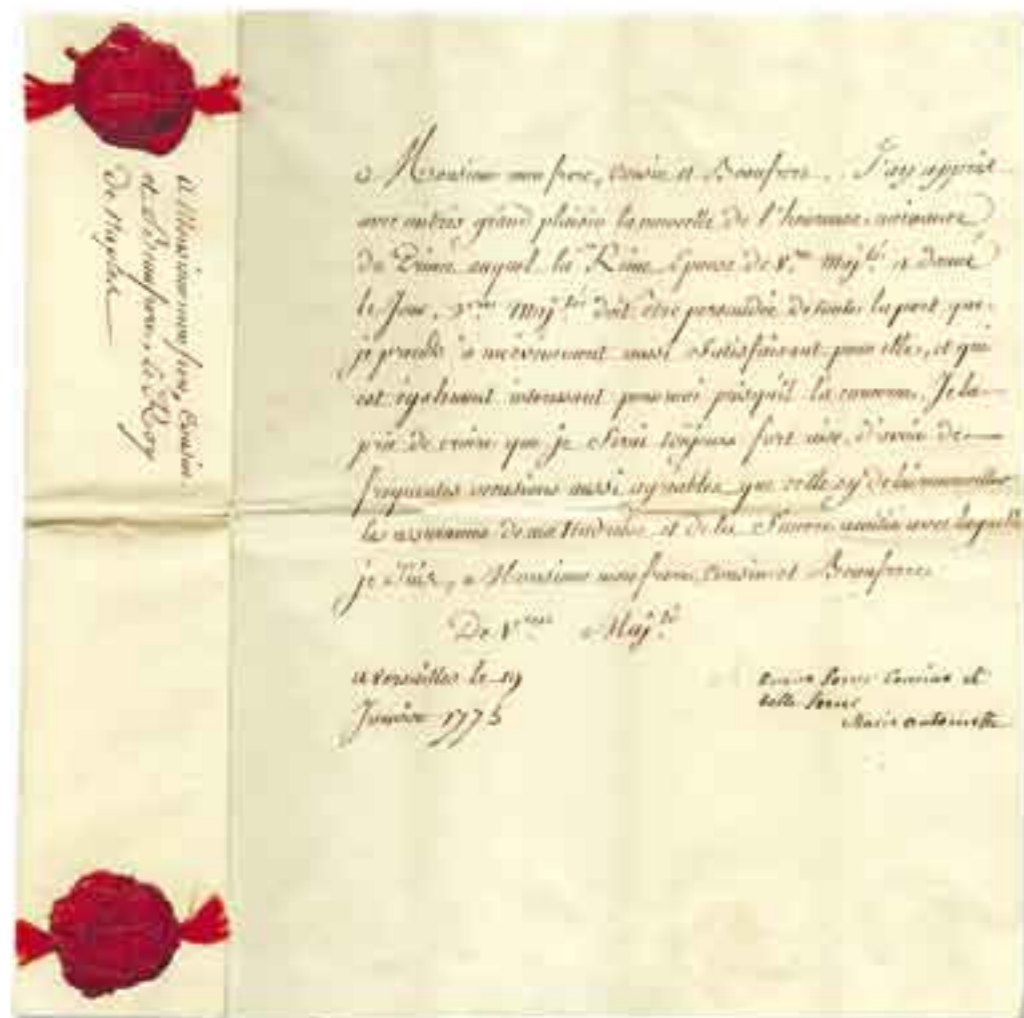 a Monsieur mon frere, Cousin
et Beaufrere le Roy
de Naples
Monsieur mon frere, Cousin et Beaufrere. J'ay appris
avec un très grand plaisir la nouvelle de l'heureuse naissance
du Prince auquel la Reine Epouse de V.re Maj.té a donné
le Jour. V.re Maj.té doit être persuadée de toute la part que
je prends à un évènement aussi Satisfaisant pour elle, et qui
est également interessant pour moi puisqu'il la concerne. Je la
prie de croire que je Serai toujours fort aise d'avoir de
frequentes occasions aussi agréables que celle cy de lui renouveller
les assurances de ma tendresse, et de la Sincere amitié avec laquelle
je Suis, Monsieur mon frere, Cousin et Beaufrere
De V.re Maj.té
a Versailles le 19
Janvier 1775
bonne Soeur Cousine et
belle Soeur
Marie antoinette